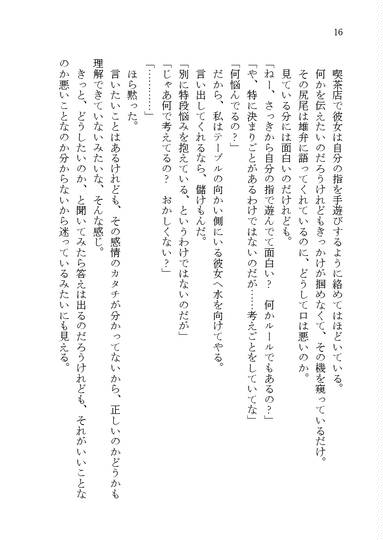 16
喫茶店で彼女は自分の指を手遊びするように絡めてはほどいている。
何かを伝えたいのだろうけれどもきっかけが掴めなくて、その機を窺っているだけ。
その尻尾は雄弁に語ってくれているのに、どうして口は悪いのか。
見ている分には面白いのだけれども。
「ねー、さっきから自分の指で遊んでて面白い？　何かルールでもあるの？」
「や、特に決まりごとがあるわけではないのだが……考えごとをしていてな」
「何悩んでるの？」
だから、私はテーブルの向かい側にいる彼女へ水を向けてやる。
言い出してくれるなら、儲けもんだ。
「別に特段悩みを抱えている、というわけではないのだが」
「じゃあ何で考えてるの？　おかしくない？」
「…………」
ほら黙った。
言いたいことはあるけれども、その感情のカタチが分かってないから、正しいのかどうかも
理解できていないみたいな、そんな感じ。
きっと、どうしたいのか、と聞いてみたら答えは出るのだろうけれども、それがいいことな
のか悪いことなのか分からないから迷っているみたいにも見える。